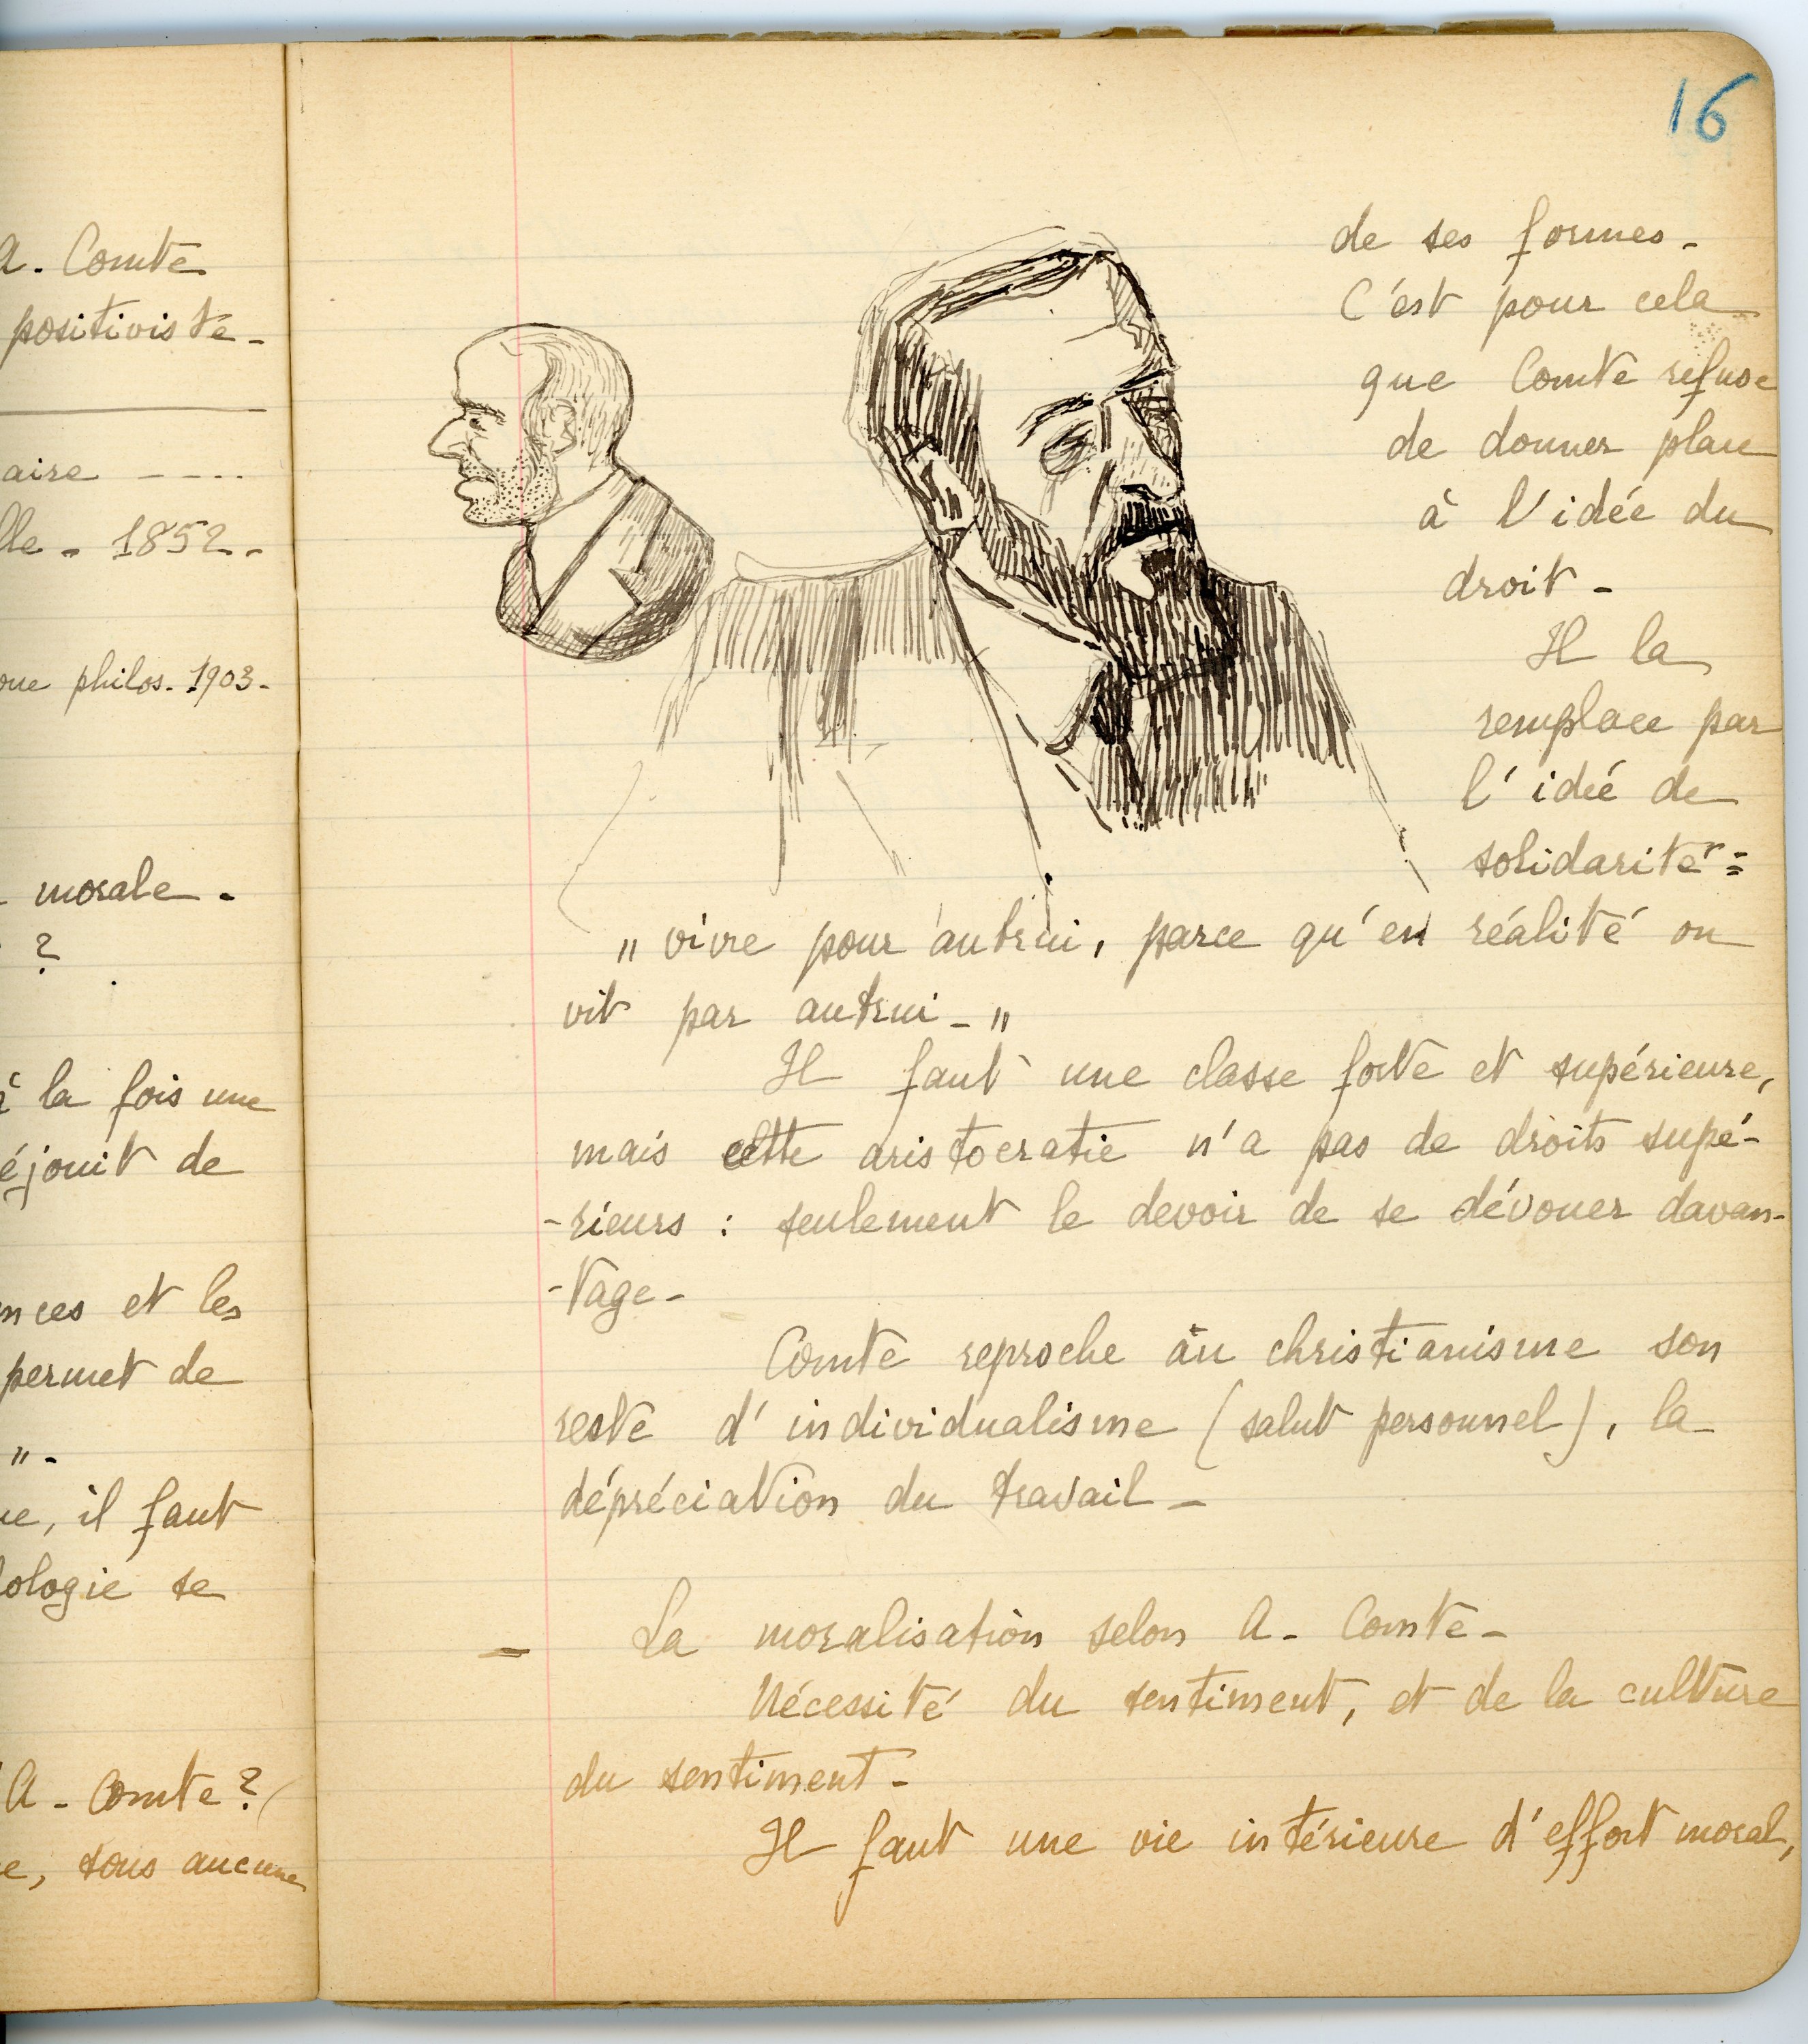 A. Comte
positiviste -
aire - - ...
lle - 1852 -
que philos. 1903 -
morale -
?
à la fois une
éjouit de
nces et les
permet de
" -
ue, il faut
ologie se
A - Comte ?
e, sous aucune
16
de ses formes -
C'est pour cela
que Comte refuse
de donner place
à l'idée du
droit -
Il la
remplace par
l'idée de
solidarité =
" vivre pour autrui, parce qu'en réalité on
vit par autrui - "
Il faut une classe forte et supérieure,
mais cette aristocratie n'a pas de droits supé-
-rieurs : seulement le devoir de se dévouer davan-
-tage -
Comte reproche au christianisme son
reste d'individualisme (salut personnel), la
dépréciation du travail -
- La moralisation selon A - Comte -
Nécessité du sentiment, et de la culture
du sentiment -
Il faut une vie intérieure d'effort moral,